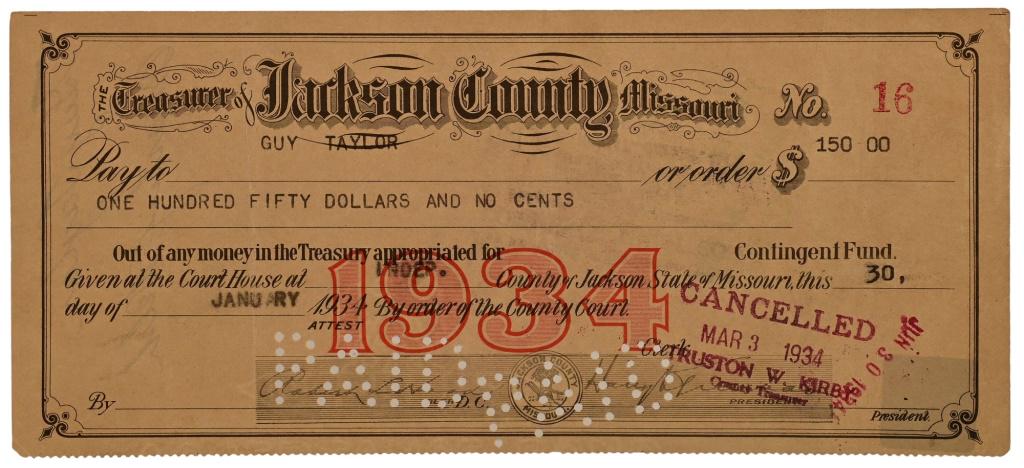 THE Treasurer of Jackson County, Missouri No. 16
GUY TAYLOR 150 00
Pay to or order $
ONE HUNDRED FIFTY DOLLARS AND NO CENTS
Out of any money in the Treasury appropriated for Contingent Fund.
Given at the Court House at INDEP. County of Jackson State of Missouri, this 30,
day of JANUARY 1934 By order of the County Court.
1934
ATTEST
CANCELLED
MAR 3 1934
RUSTON W. KIRBY
County Treasurer
JUN 30
Clerk
JACKSON COUNTY
By D.C. PRESIDENT
President.